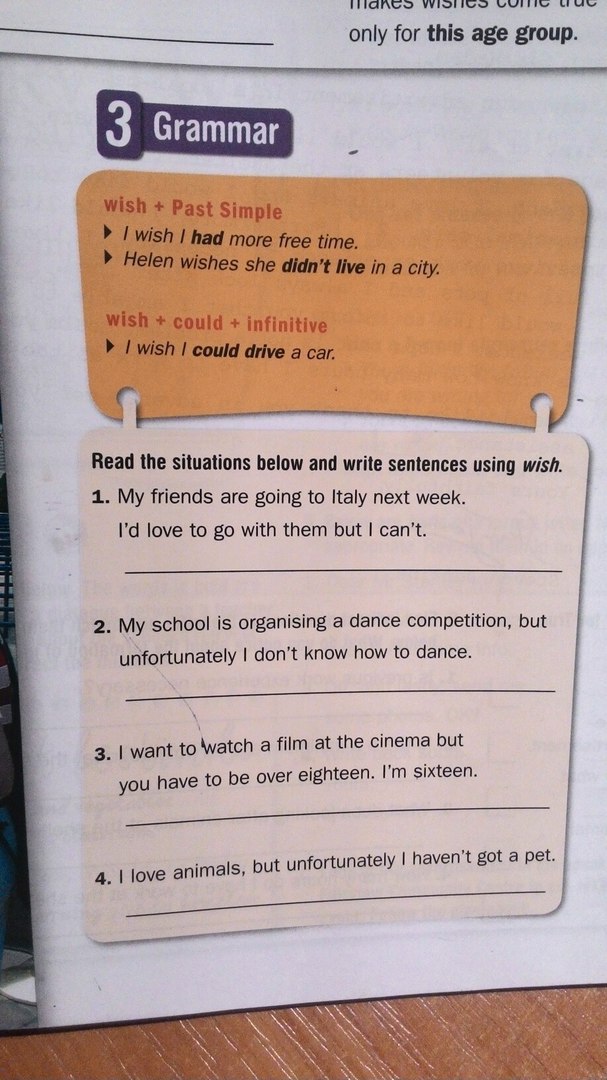 makes wishes come true
only for this age group.
3 Grammar
wish + Past Simple
I wish I had more free time.
Helen wishes she didn't live in a city.
wish + could + infinitive
I wish I could drive a car.
Read the situations below and write sentences using wish.
1. My friends are going to Italy next week.
I'd love to go with them but I can't.
2. My school is organising a dance competition, but
unfortunately I don't know how to dance.
3. I want to watch a film at the cinema but
you have to be over eighteen. I'm sixteen.
4. I love animals, but unfortunately I haven't got a pet.